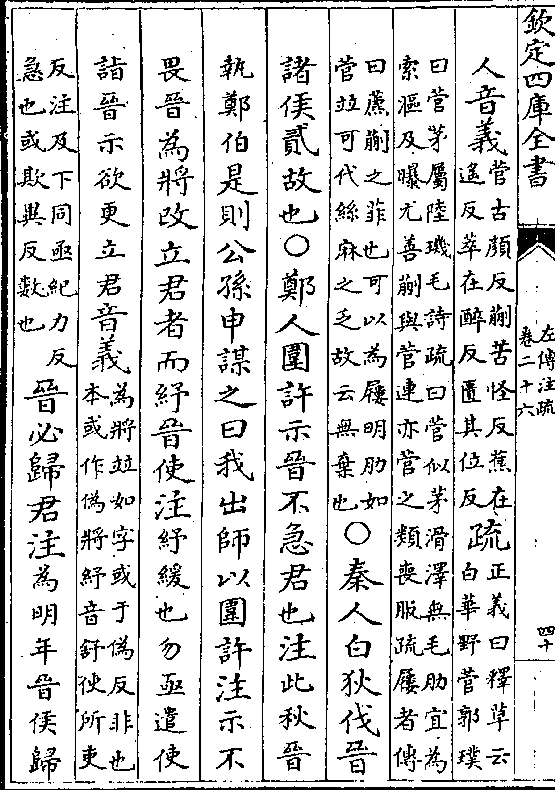 欽定四庫全書
左傳注疏
卷二十六
四十
人音義
菅古顏反蒯苦怪反蕉在
遙反萃在醉反匱其位反
疏
正義曰釋草云
白華野菅郭璞
曰菅茅屬陸璣毛詩疏曰菅似茅滑澤無毛肋宜為
索漚及曝尤善蒯與菅連亦菅之類喪服疏屨者傳
曰藨蒯之菲也可以為屨明肋如
菅竝可代絲麻之乏故云無棄也
○秦人白狄伐晉
諸侯貳故也○鄭人圍許示晉不急君也注此秋晉
執鄭伯是則公孫申謀之曰我出師以圍許注示不
畏晉為將改立君者而紓晉使注紓緩也勿亟遣使
詣晉示欲更立君音義
為將竝如字或于偽反非也
本或作偽將紓音舒使所吏
反注及下同亟紀力反
急也或欺異反數也
晉必歸君注為明年晉侯歸